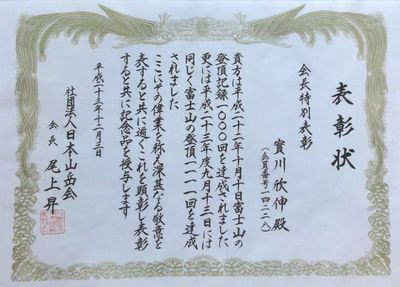 表彰状
会長特別表彰
實川欣伸殿
(会員番号一四二二八)
貴方は平成二十二年十月十日富士山の
登頂記録一〇〇〇回を達成されました
更には平成二十三年度九月十三日には
同じく富士山の登頂一一一一回を達成
されました
ここにその偉業を称え深甚なる敬意を
表すると共に遍くこれを顕彰し表彰
すると共に記念品を授与します
平成二十三年十二月三日
社団法人日本山岳会
会長 尾上昇